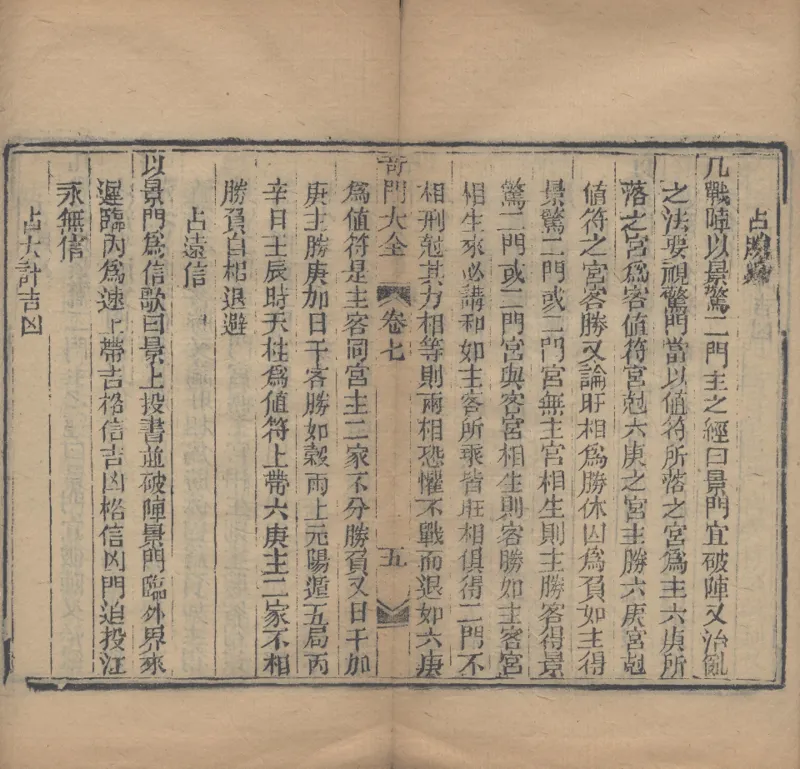 占勝負
凡戰陣以景驚二門主之經曰景門宜破陣又治亂
之法要視驚門當以值符所落之宮爲主六庚所
落之宮爲客值符宮尅六庚之宮主勝六庚宮尅
值符之宮客勝又論旺相爲勝休囚爲負如主得
景驚二門或二門宮無主宮相生則主勝客得景
驚二門或二門宮與客宮相生則客勝如主客宮
相生來必講和如主客所乘皆旺相俱得二門不
相刑尅其力相等則兩相恐懼不戰而退如六庚
奇門大全 卷七 五
爲值符是主客同宮主二家不分勝負又日干加
庚主勝庚加日干客勝如穀雨上元陽遁五局丙
辛日壬辰時天柱爲値符上帶六庚主二家不相
勝負自相退避
占遠信
以景門爲信歌曰景上投書並破陣景門臨外界來
遲臨內爲速上帶吉格信吉凶格信凶門迫投江
永無信
占大計吉凶